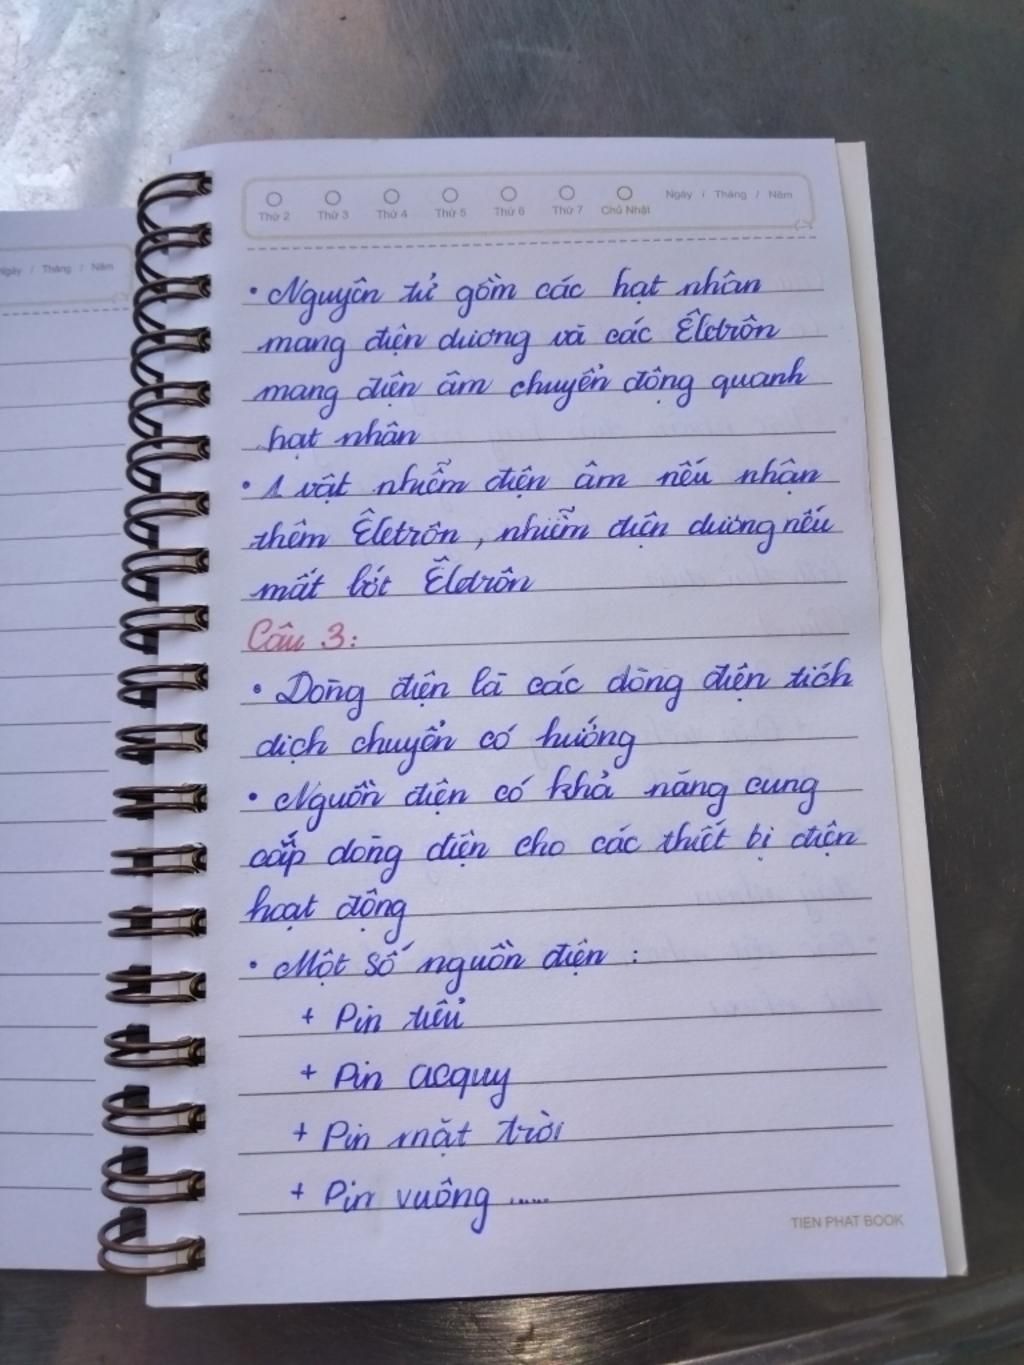 Thứ 2 Thứ 3 Thứ 4 Thứ 5 Thứ 6 Thứ 7 Chủ Nhật Ngày / Tháng / Năm
Ngày / Tháng / Năm
• Nguyên tử gồm các hạt nhân
mang điện dương và các Êlctrôn
mang điện âm chuyển động quanh
hạt nhân
• 1 vật nhiễm điện âm nếu nhận
thêm Êletrôn, nhiễm điện dương nếu
mất bớt Êlctrôn
Câu 3:
• Dòng điện là các dòng điện tích
dịch chuyển có hướng
• Nguồn điện có khả năng cung
cấp dòng điện cho các thiết bị điện
hoạt động
• Một số nguồn điện :
+ Pin tiểu
+ Pin acquy
+ Pin mặt trời
+ Pin vuông .....
TIEN PHAT BOOK